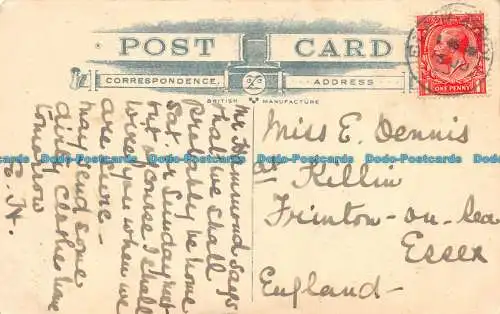 POST CARD
CORRESPONDENCE
ADDRESS
BRITISH MANUFACTURE
ONE PENNY
Mr Hammond says
that we shall
probably be home
Sat. or Sunday next
but of course I shall
wire you when we
are sure -
may send some
dirty clothes home
tomorrow
E. H.
Miss E. Dennis
Killin
Frinton-on-Sea
Essex
England-
Dodo-Postcards Dodo-Postcards Dodo-Postcards Dodo-Postcards Dodo-Postcards